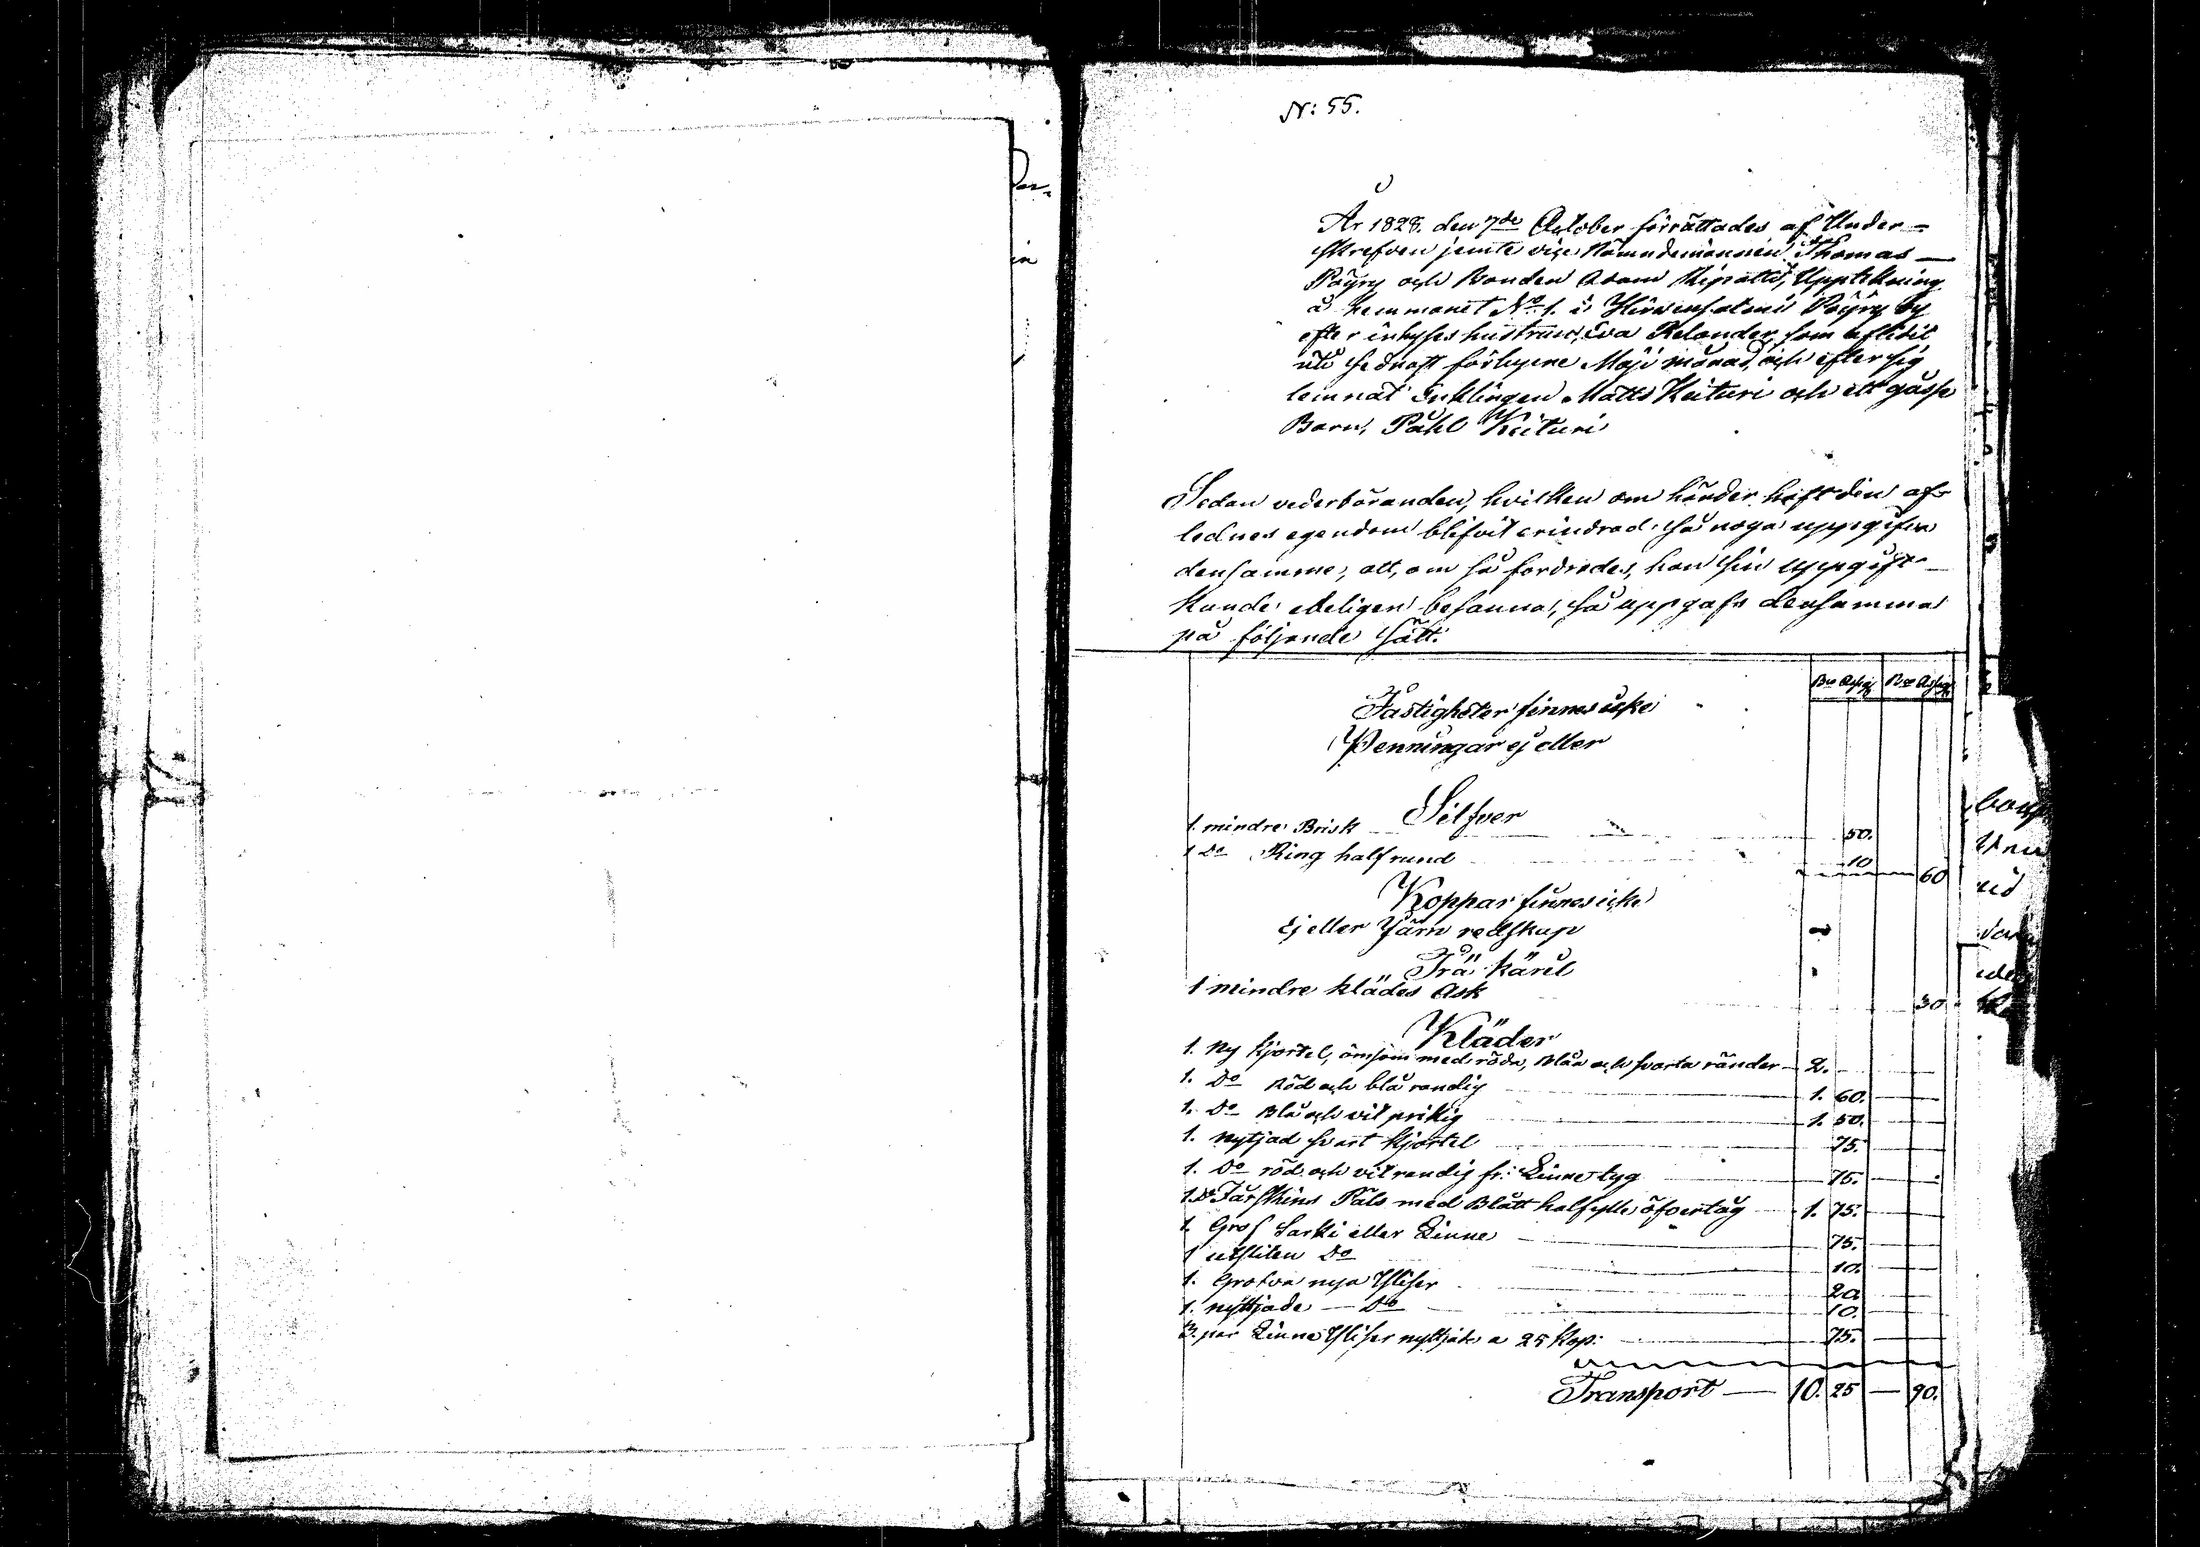 N: 55.
År 1828. den 7de October förrättades af Under-
skrefven jemte vice Nämndemannen Thomas
Pöyry och Bonden Adam Uppteckning
å hemmanet No 1. i Hirvensalmi Pöyry by
efter inhyses hustrun, Eva Relander som aflidit
uti sednast förlupne Maji månad, och efter sig
lemnat Enklingen Matts Keituri och ett gosse
Barn, Påhl Keituri
Sedan vederböranden, hvilken om händer haft den af-
lednes egendom blifvit erindrad, så noga uppgifva
densamme, att, om så fordrades, han sin uppgift
kunde edeligen besanna, så uppgafs densamma
på följande sätt.
Fastigheter finnes icke
Penningar ej eller
Silfver
1. mindre Brisk 50.
1 Do Ring half rund 10 60
Koppar finnes icke
Ej eller Järn redskap
Trä käril
1 mindre klädes Ask 30
Kläder
1. Ny kjortel, ömsom med röda, blåa och svarta ränder 2.
1. Do Röd och blå randig 1. 60.
1. Do Blå och vit prikig 1. 50.
1. nytjad svart kjortel 75.
1. Do röd och vit randig fr: Linne tyg 75.
1. Do Får skins Päls med Blått halfylle öfvertåg 1. 75.
1. Grof Sarki eller Linne 75.
1 utsliten Do 10.
1. Grofva nya 20
1. nyttjade Do 10.
3. par Linne nyttjade a 25 Kop: 75.
Transport 10. 25 90.